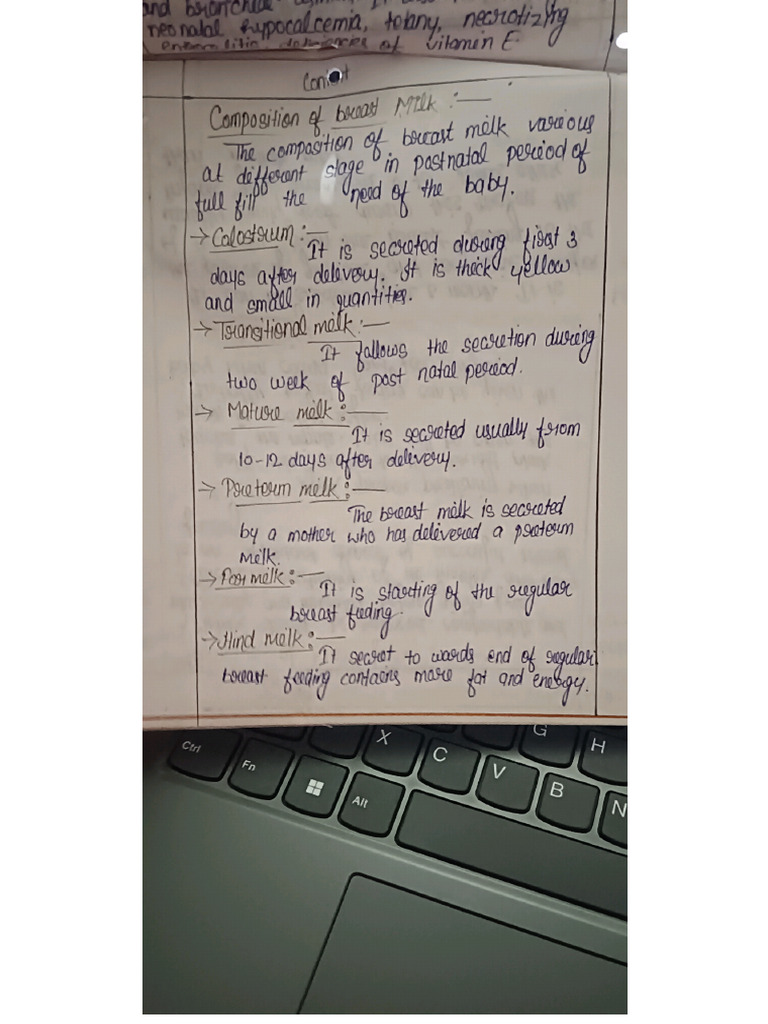 and bronchial
neonatal hypocalcemia, tetany, necrotizing
deficiencies of vitamin E.
Content
Composition of breast Milk :—
The composition of breast milk various
at different stage in postnatal period of
full fill the need of the baby.
→ Colostrum :—
It is secreted during first 3
days after delivery. It is thick yellow
and small in quantities.
→ Transitional milk :—
It follows the secretion during
two week of post natal period.
→ Mature milk :—
It is secreted usually from
10-12 days after delivery.
→ Preterm milk :—
The breast milk is secreted
by a mother who has delivered a preterm
milk.
→ For milk :—
It is starting of the regular
breast feeding.
→ Hind milk :—
It secret to wards end of regular
breast feeding contains more fat and energy.
Ctrl
Fn
Alt
X
C
V
B
N
G
H